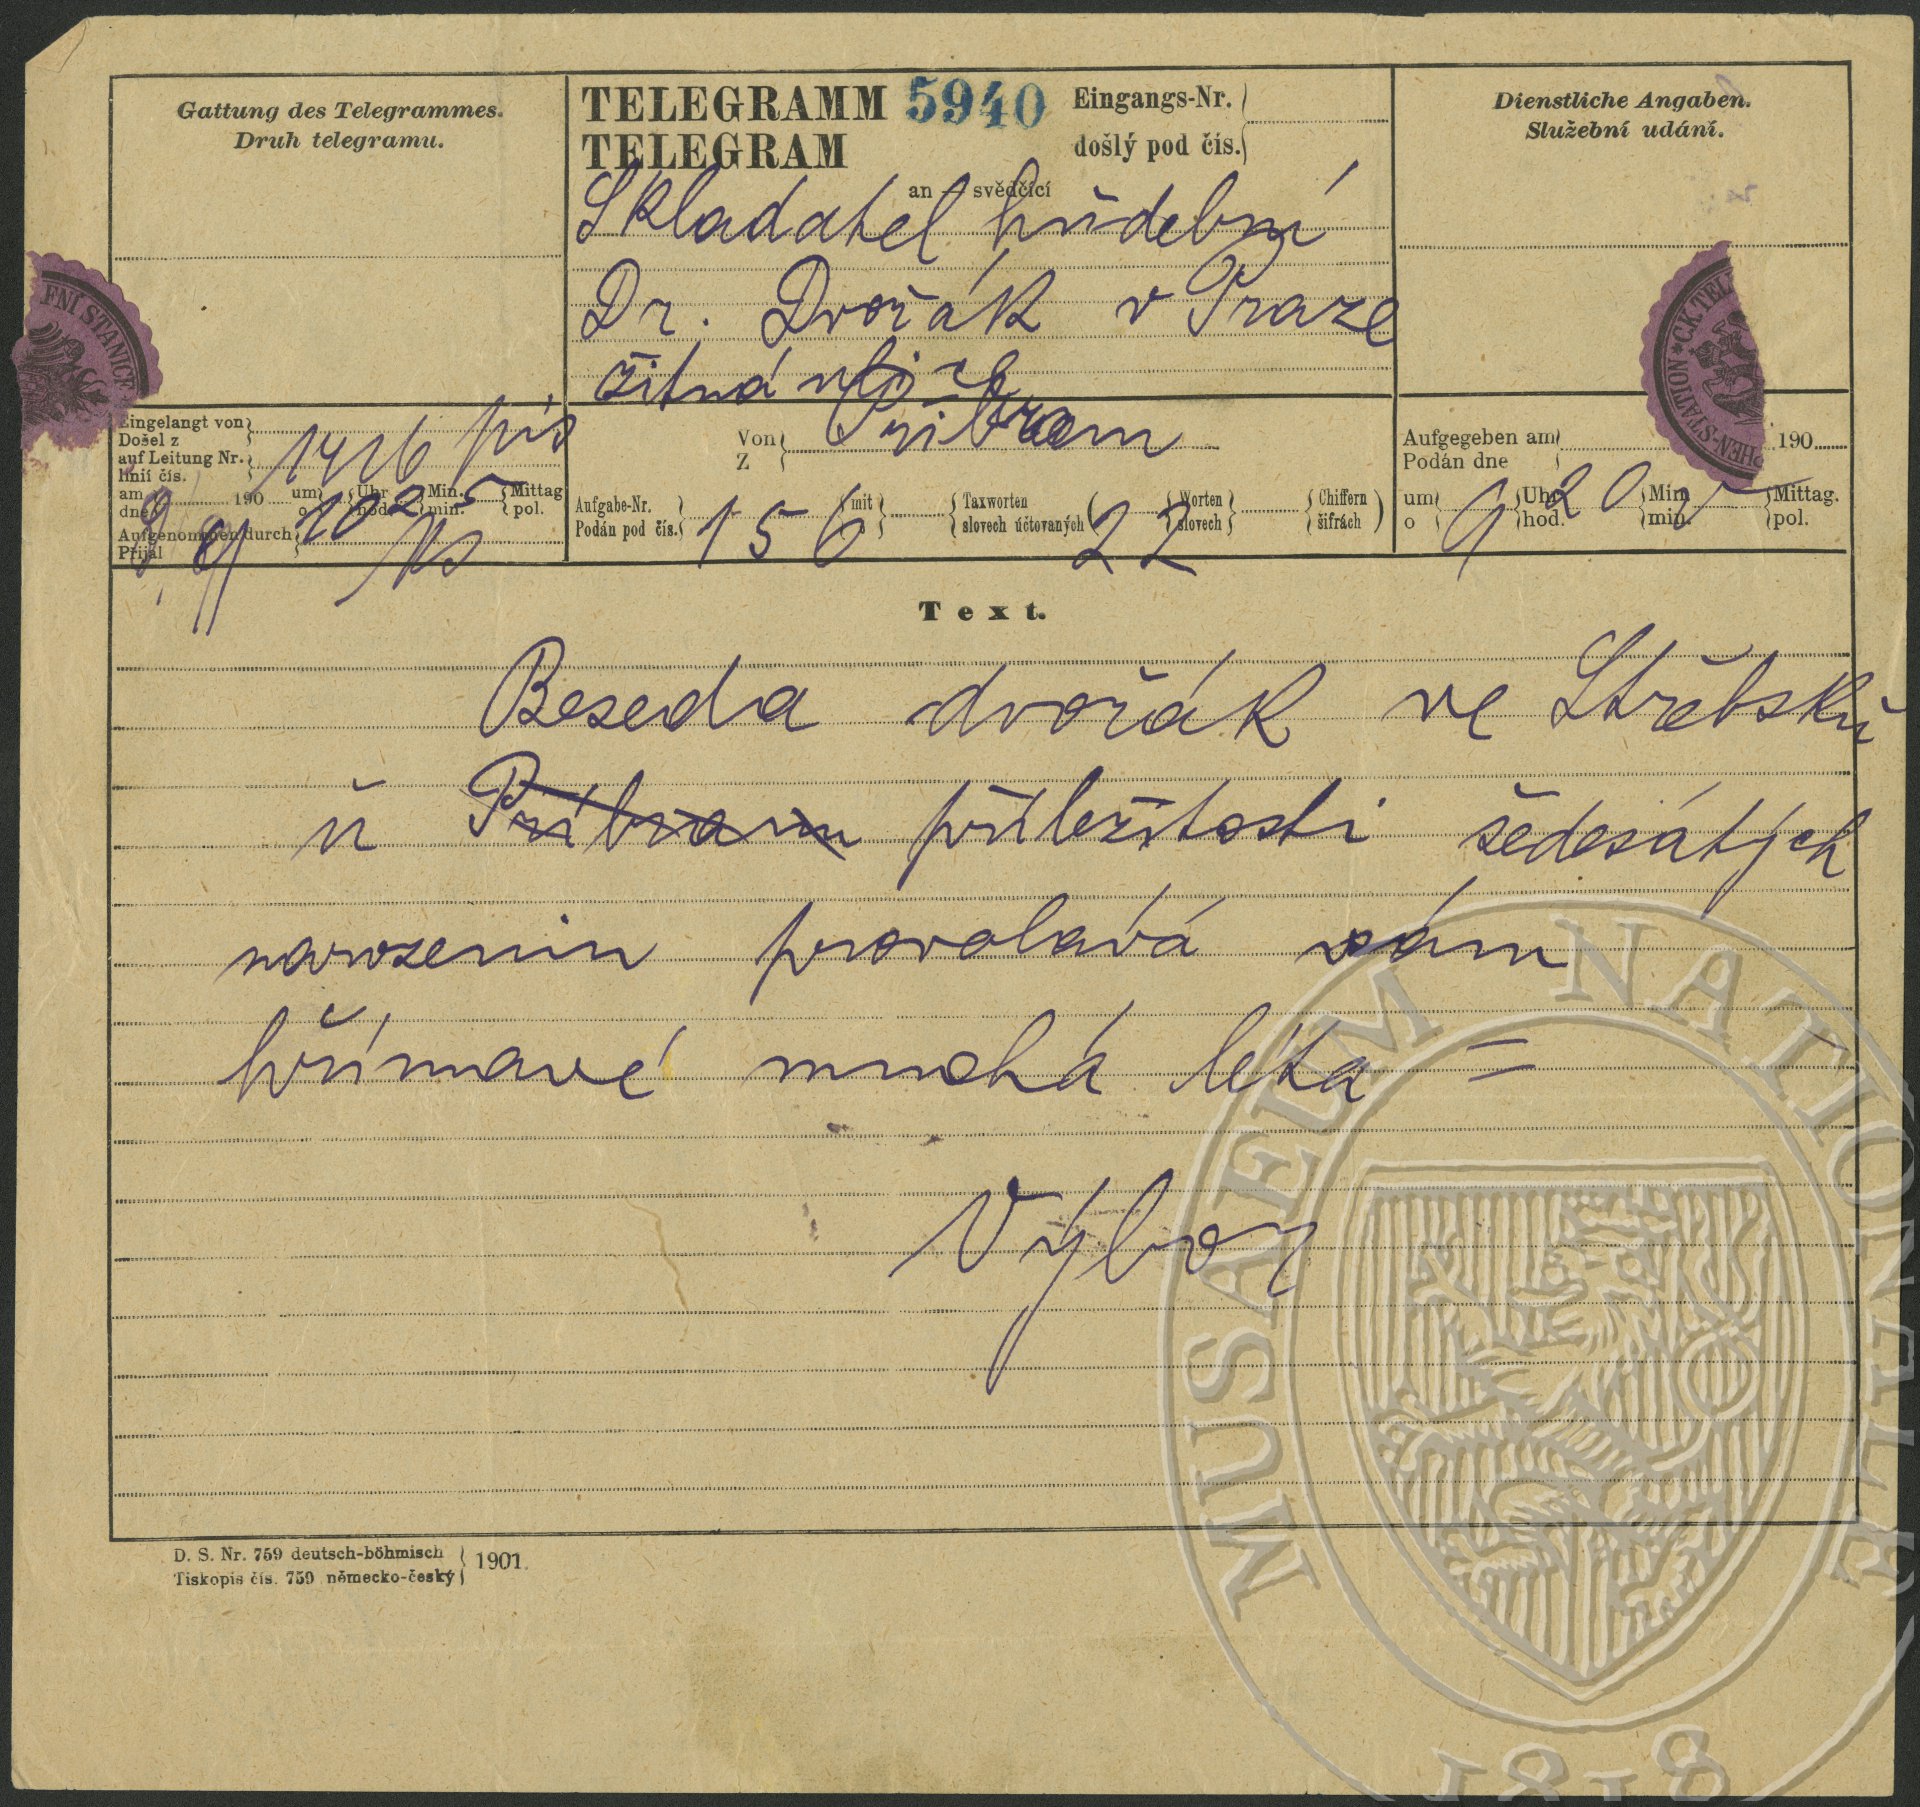 Gattung des Telegrammes.
Druh telegramu.
TELEGRAMM 5940 Eingangs-Nr.
TELEGRAM došlý pod čís.
an — svědčící
Skladatel hudební
Dr. Dvořák v Praze
žitná ulice
Dienstliche Angaben.
Služební udání.
FNÍ STANICE
CK.TEL
HEN-STATION
Eingelangt von
Došel z
auf Leitung Nr.
linií čís. 1416
am 190 um Uhr Min. Mittag
dne o hod. min. pol.
9 9 10 25
Aufgenommen durch
Přijal
Von Příbram
Z
Aufgabe-Nr. mit Taxworten ( Worten Chiffern )
Podán pod čís. 156 slovech účtovaných 22 slovech šifrách
Aufgegeben am 190
Podán dne
um 9 Uhr 20 Min. Mittag.
o hod. min. pol.
Text.
Beseda dvořák ve Střebsku
u Příbram příležitosti šedesátých
narozenin provolává vám
hřímavé mnohá léta =
Výbor
D. S. Nr. 759 deutsch-böhmisch
Tiskopis čís. 759 německo-český 1901.
MUSAEUM NATIONALE
1818